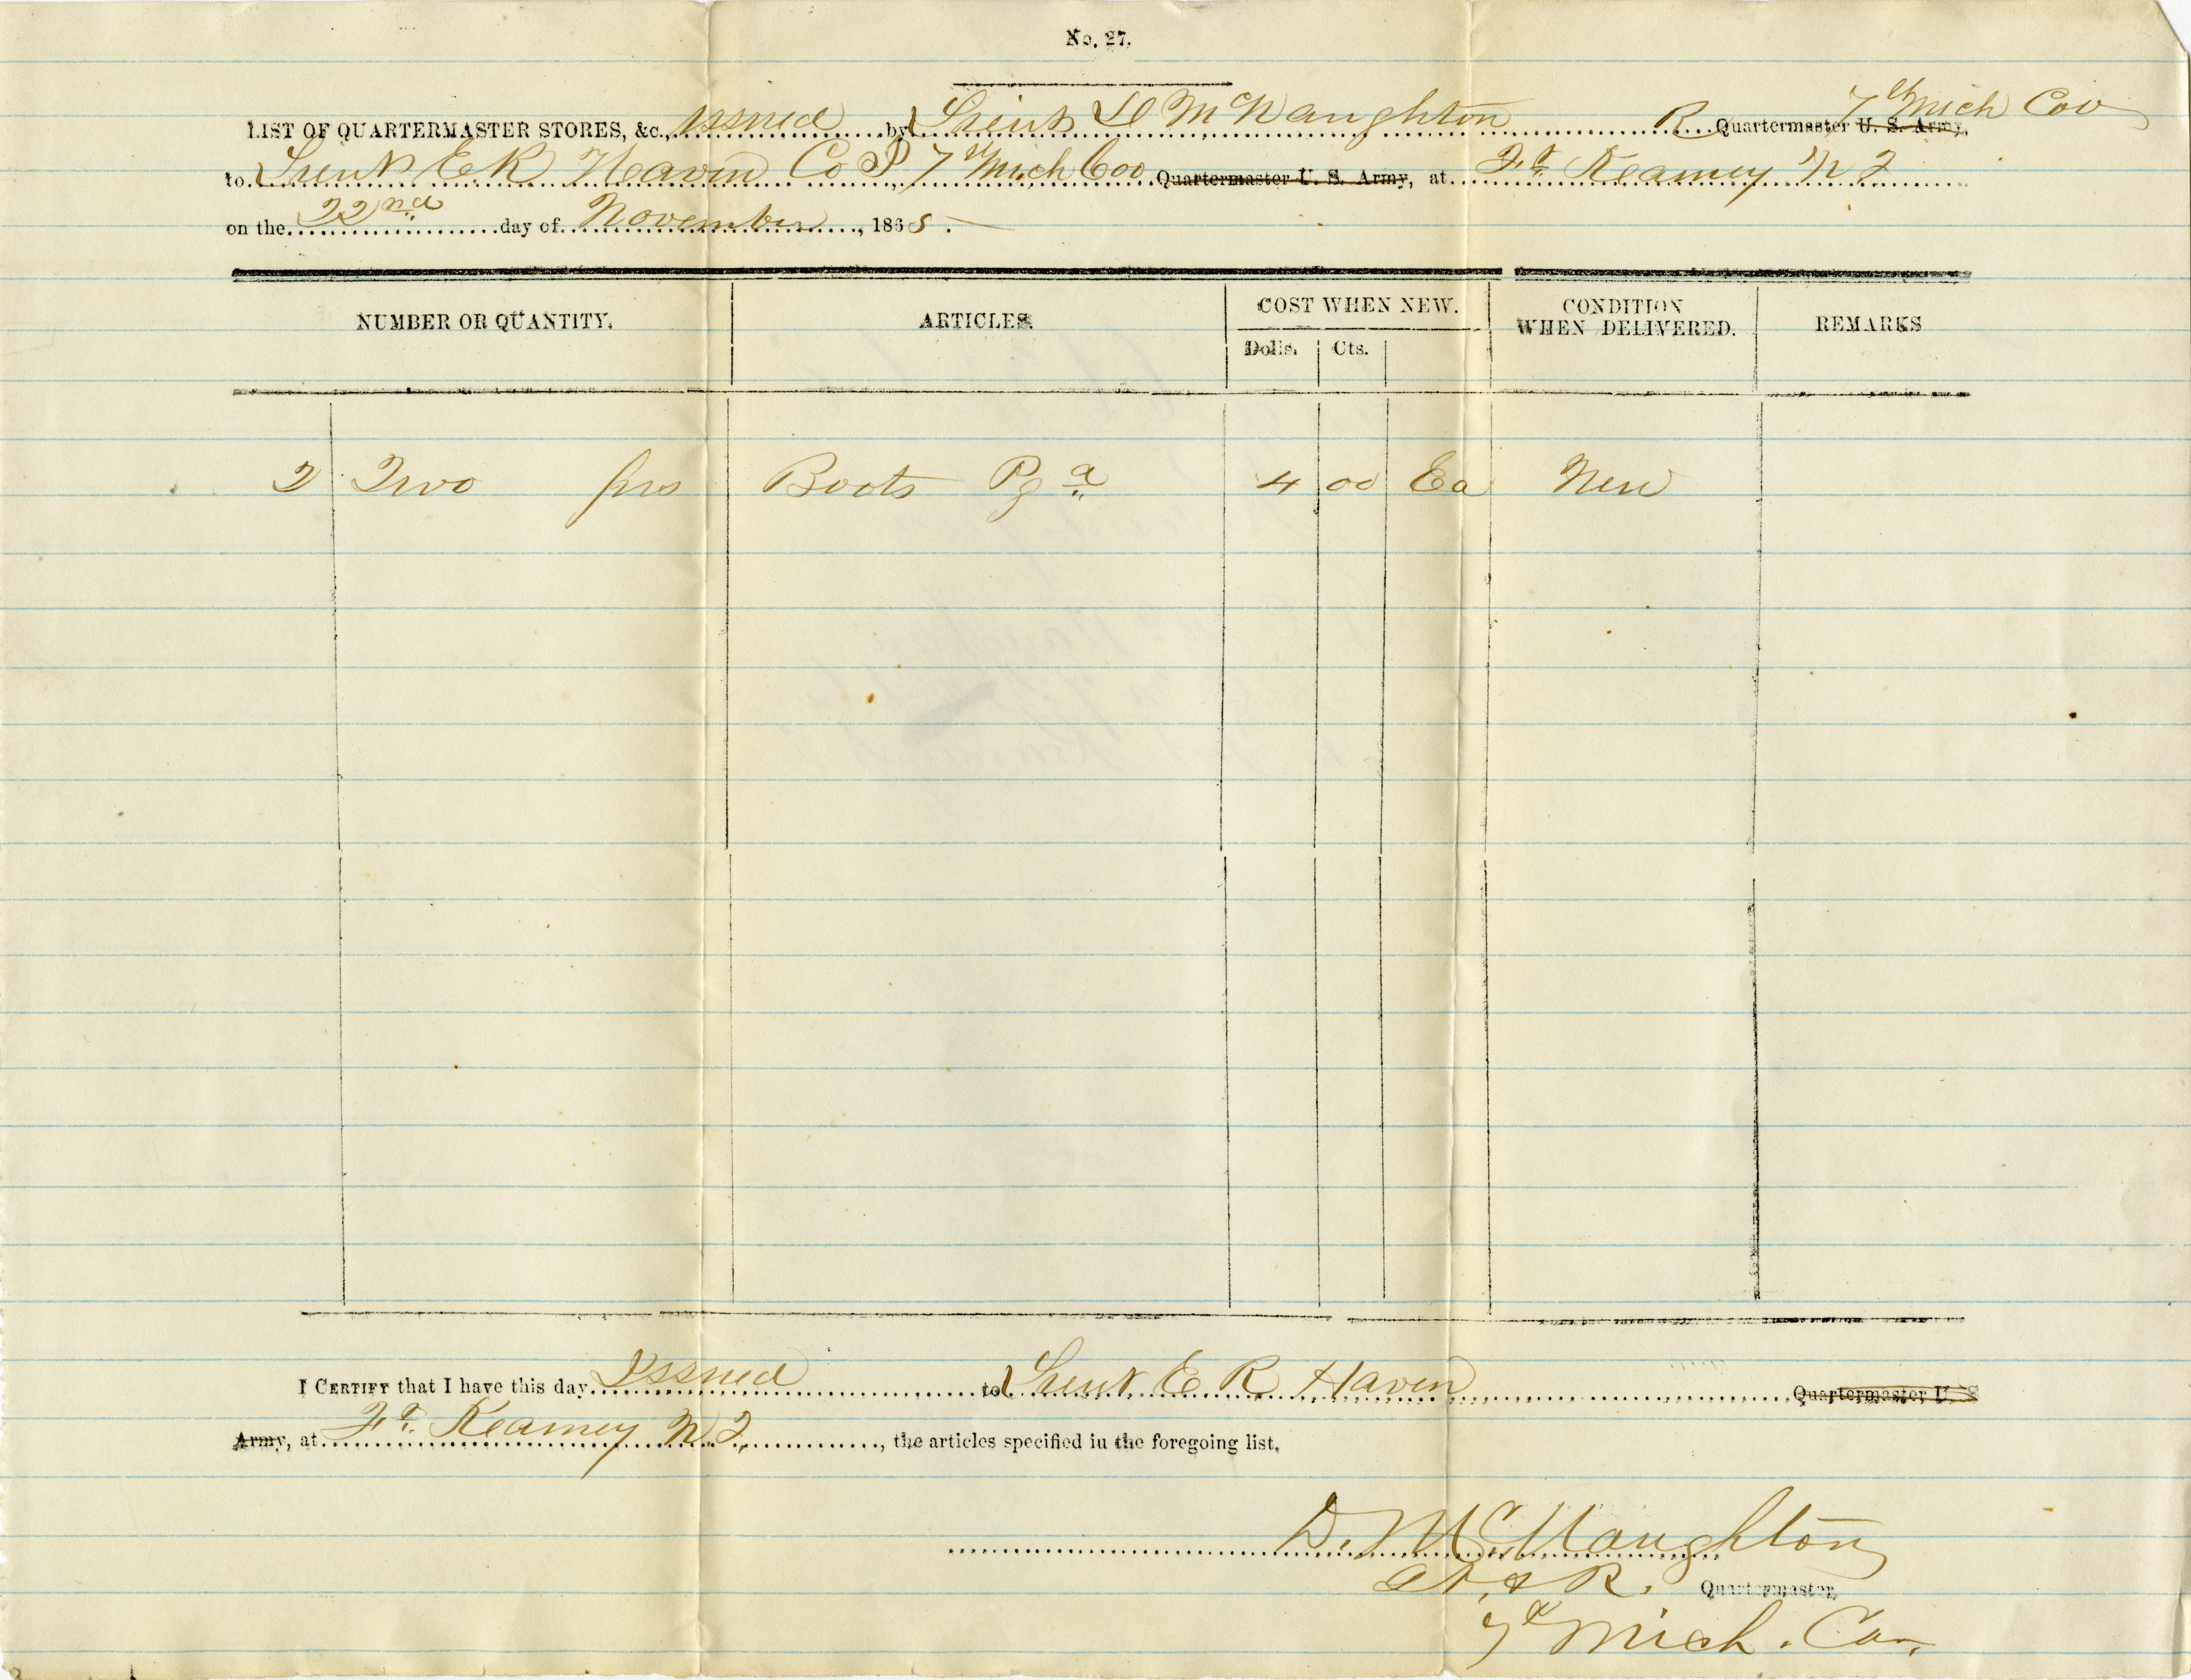 No. 27.
LIST OF QUARTERMASTER STORES, &c., Issued by Lieut D McNaughton R Quartermaster U. S. Army, 7th Mich Cav
to Lieut E R Haven Co 7th Mich Cav Quartermaster U. S. Army, at Ft Kearney N T
on the 22nd day of November, 1865.
NUMBER OR QUANTITY. ARTICLES. COST WHEN NEW. CONDITION WHEN DELIVERED. REMARKS
Dolls. Cts.
2 Two prs Boots 4 00 Ea New
I CERTIFY that I have this day Issued to Lieut E R Haven Quartermaster U. S
Army, at Ft. Kearney N. T., the articles specified in the foregoing list,
D. McNaughton
Lt. & R. Quartermaster,
7th Mich. Cav.